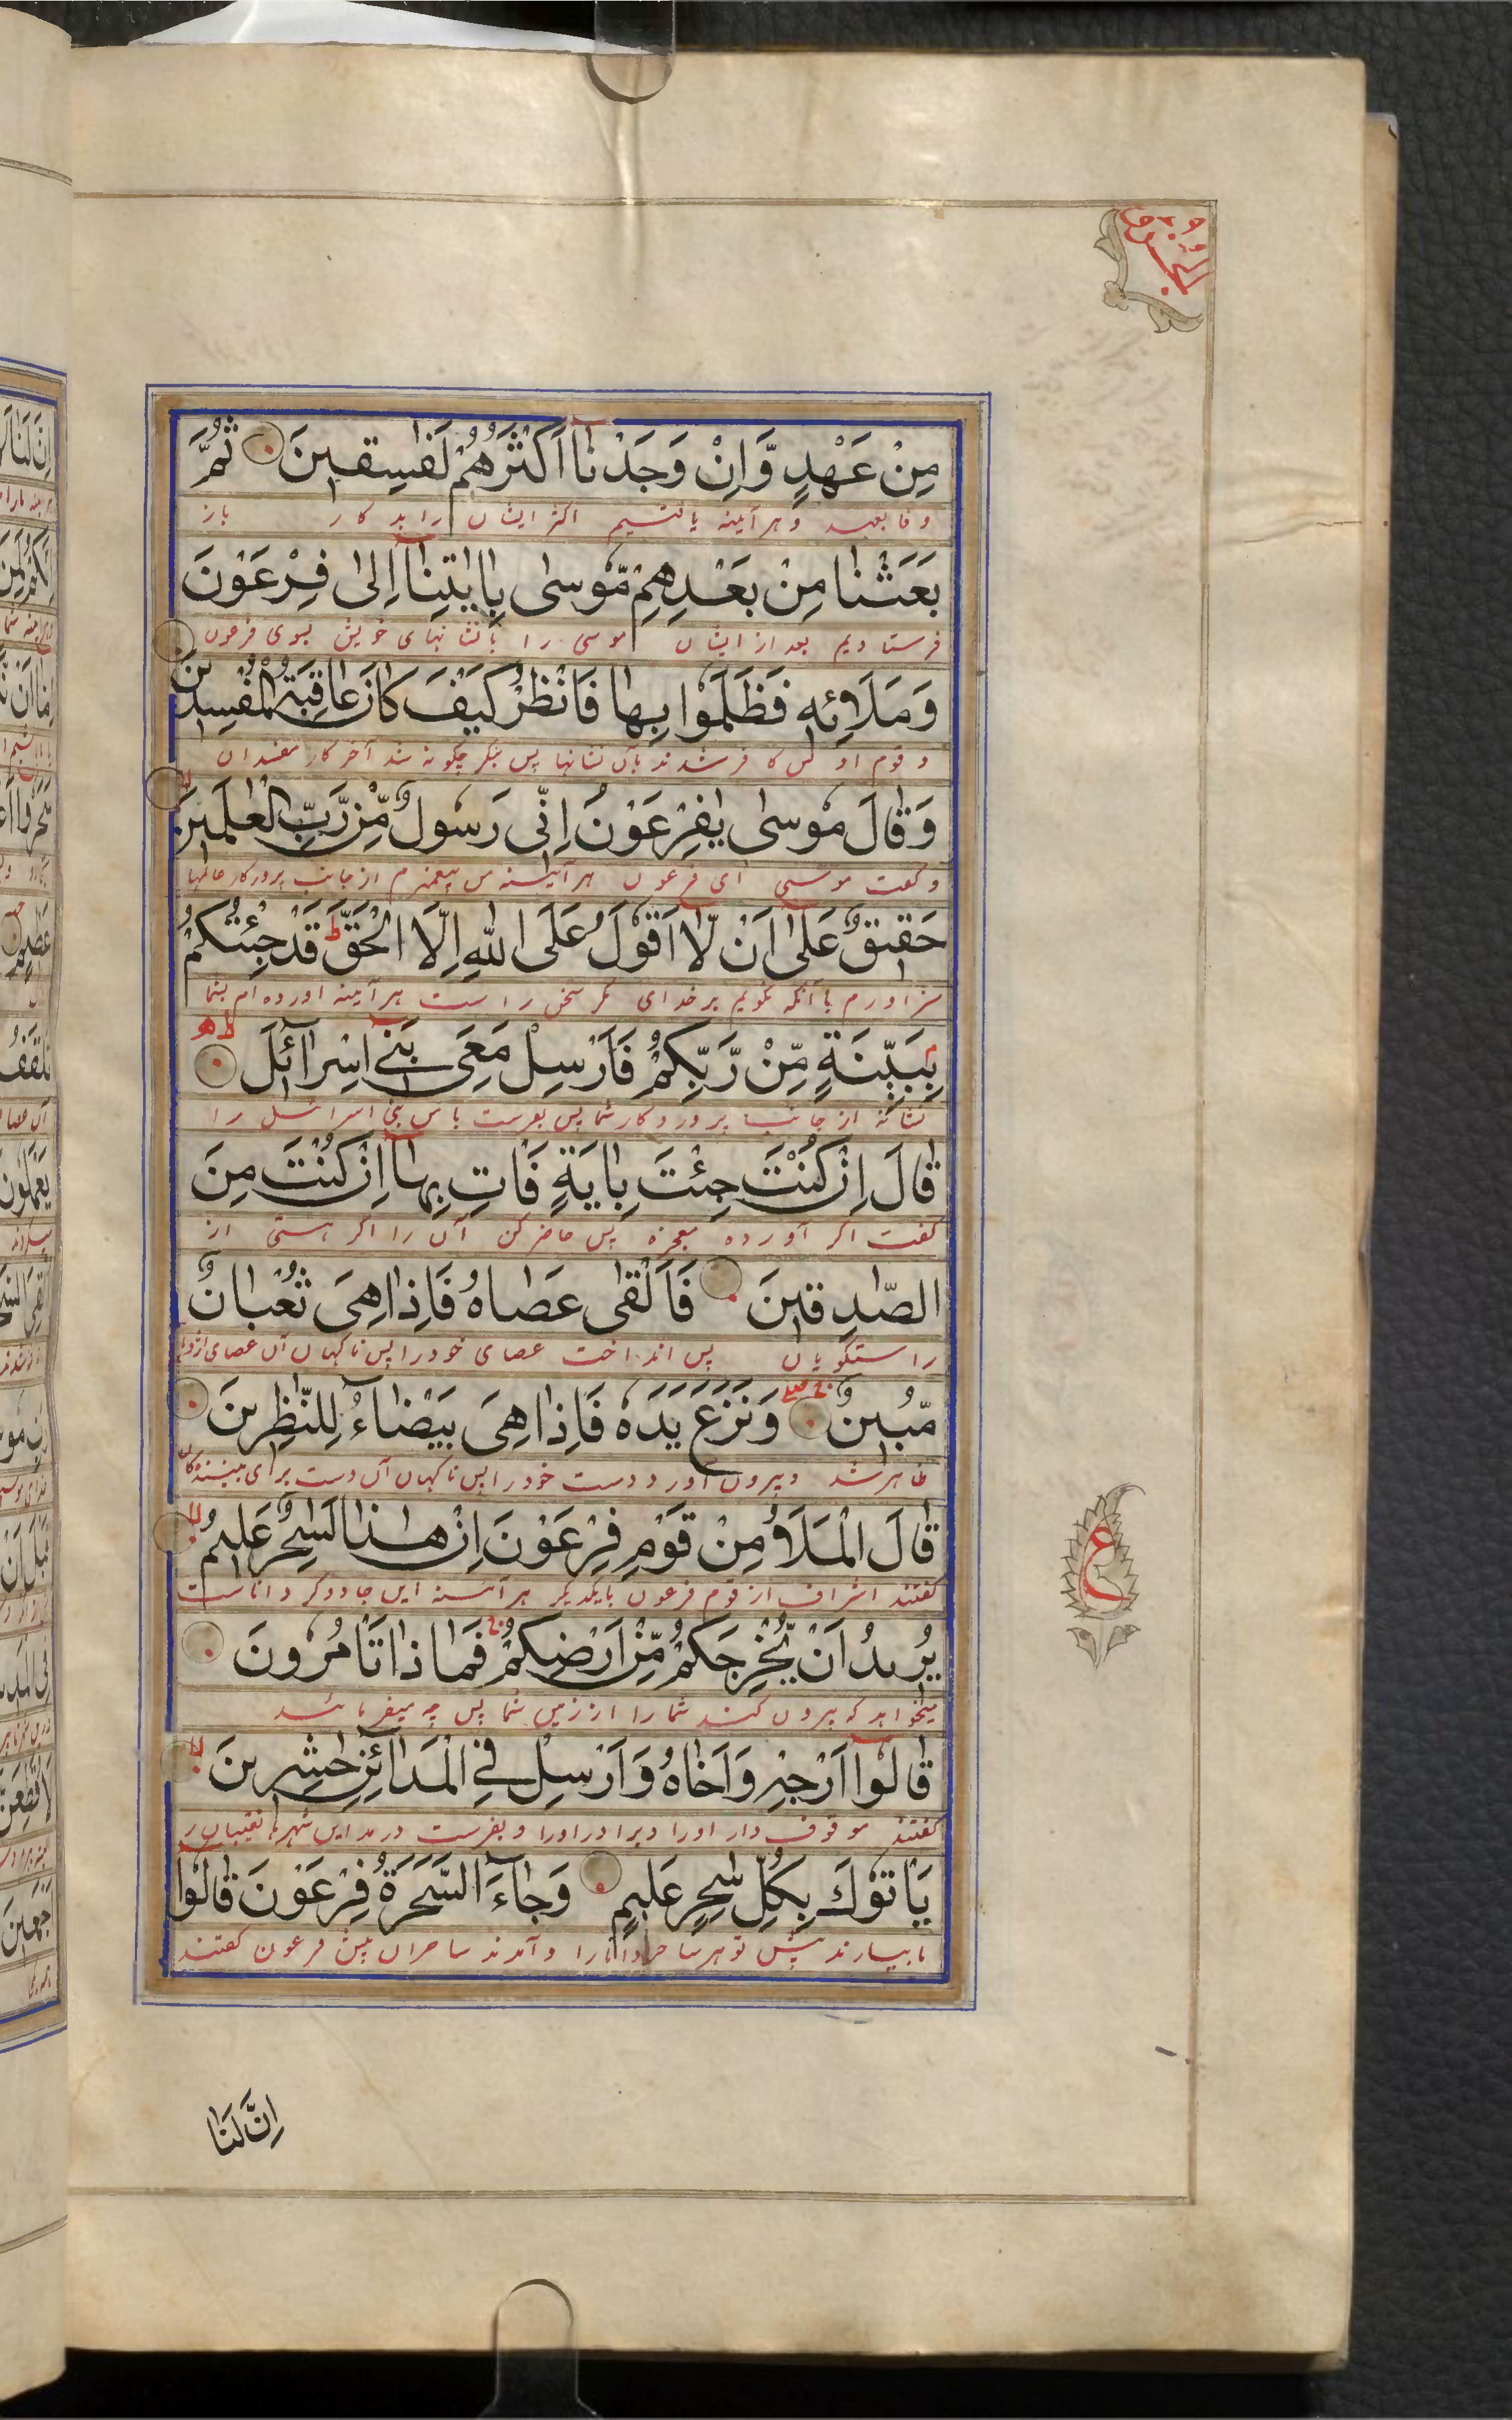 الجزو
مِنْ عَهْدٍ وَّاِنْ وَجَدْنَا اَكْثَرَهُمْ لَفٰسِقِينَ ثُمَّ
وفا بعهد و هر آینه یافتیم اکثر ایشان را بد کار باز
بَعَثْنَا مِنْ بَعْدِهِمْ مُّوسٰى بِاٰيٰتِنَا اِلٰى فِرْعَوْنَ
فرستادیم بعد از ایشان موسی را با نشانهای خویش بسوی فرعون
وَمَلَا۟ئِهٖ فَظَلَمُوا بِهَا فَانْظُرْ كَيْفَ كَانَ عَاقِبَةُ الْمُفْسِدِينَ
و قوم او پس کافر شدند بآن نشانها پس بنگر چگونه شد آخر کار مفسدان
وَقَالَ مُوسٰى يٰفِرْعَوْنُ اِنِّى رَسُولٌ مِّنْ رَّبِّ الْعٰلَمِينَ
و گفت موسی ای فرعون هر آینه من پیغمبرم از جانب پروردگار عالمها
حَقِيقٌ عَلٰى اَنْ لَّا اَقُولَ عَلَى اللّٰهِ اِلَّا الْحَقَّ ط قَدْ جِئْتُكُمْ
سزاوارم با آنکه نگویم بر خدای مگر سخن راست هر آینه آورده ام بشما
بِبَيِّنَةٍ مِّنْ رَّبِّكُمْ فَاَرْسِلْ مَعِىَ بَنِىٓ اِسْرَآئِلَ
نشانه از جانب پروردگار شما پس بفرست با من بنی اسرائیل را
قَالَ اِنْ كُنْتَ جِئْتَ بِاٰيَةٍ فَاْتِ بِهَا اِنْ كُنْتَ مِنَ
گفت اگر آورده معجزه پس حاضر کن آن را اگر هستی از
الصّٰدِقِينَ فَاَلْقٰى عَصَاهُ فَاِذَا هِىَ ثُعْبَانٌ
راستگویان پس انداخت عصای خود را پس ناگهان آن عصای اژدها
مُّبِينٌ وَنَزَعَ يَدَهٗ فَاِذَا هِىَ بَيْضَآءُ لِلنّٰظِرِينَ
ظاهر شد و بیرون آورد دست خود را پس ناگهان آن دست برای بینندگان
قَالَ الْمَلَاُ مِنْ قَوْمِ فِرْعَوْنَ اِنَّ هٰذَا لَسٰحِرٌ عَلِيمٌ
گفتند اشراف از قوم فرعون با یکدیگر هر آینه این جادوگر داناست
ع
يُرِيدُ اَنْ يُّخْرِجَكُمْ مِّنْ اَرْضِكُمْ ج فَمَاذَا تَاْمُرُونَ
میخواهد که بیرون کند شما را از زمین شما پس چه میفرمائید
قَالُوٓا اَرْجِهْ وَاَخَاهُ وَاَرْسِلْ فِى الْمَدَآئِنِ حٰشِرِينَ
گفتند موقوف دار او را و برادر او را و بفرست در مداین شهرها نقیبان را
يَاْتُوكَ بِكُلِّ سٰحِرٍ عَلِيمٍ وَجَآءَ السَّحَرَةُ فِرْعَوْنَ قَالُوٓا
تا بیارند پیش تو هر ساحر دانا را و آمدند ساحران پیش فرعون گفتند
اِنَّ لَنَا